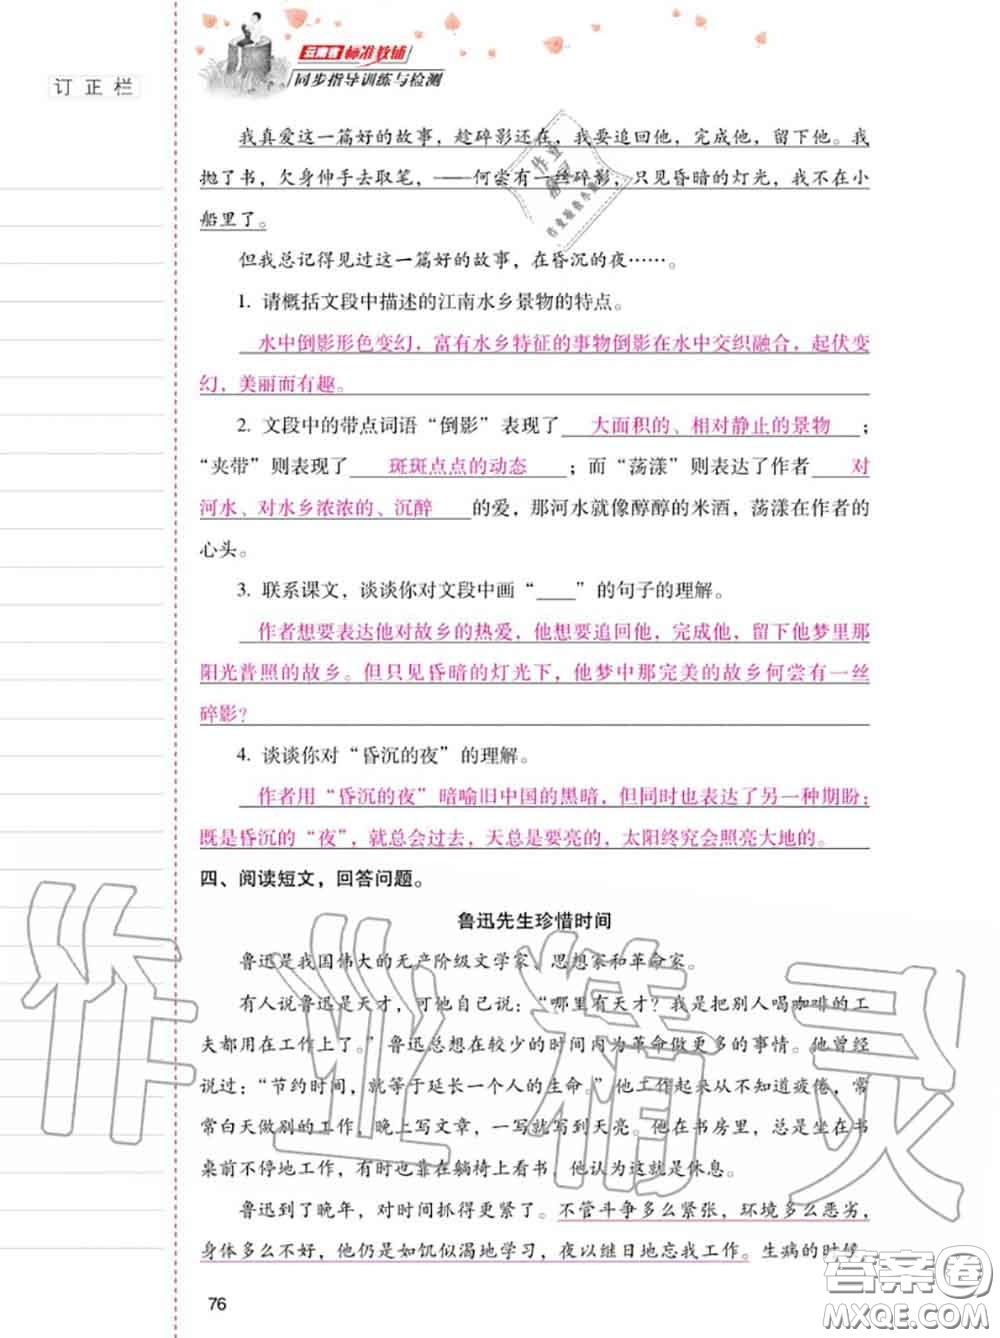 云南省标准教辅
同步指导训练与检测
订 正 栏
我真爱这一篇好的故事，趁碎影还在，我要追回他，完成他，留下他。我
抛了书，欠身伸手去取笔，——何尝有一丝碎影，只见昏暗的灯光，我不在小
船里了。
但我总记得见过这一篇好的故事，在昏沉的夜……。
1. 请概括文段中描述的江南水乡景物的特点。
水中倒影形色变幻，富有水乡特征的事物倒影在水中交织融合，起伏变
幻，美丽而有趣。
2. 文段中的带点词语“倒影”表现了 大面积的、相对静止的景物 ；
“夹带”则表现了 斑斑点点的动态 ；而“荡漾”则表达了作者 对
河水、对水乡浓浓的、沉醉 的爱，那河水就像醇醇的米酒，荡漾在作者的
心头。
3. 联系课文，谈谈你对文段中画“____”的句子的理解。
作者想要表达他对故乡的热爱，他想要追回他，完成他，留下他梦里那
阳光普照的故乡。但只见昏暗的灯光下，他梦中那完美的故乡何尝有一丝
碎影？
4. 谈谈你对“昏沉的夜”的理解。
作者用“昏沉的夜”暗喻旧中国的黑暗，但同时也表达了另一种期盼：
既是昏沉的“夜”，就总会过去，天总是要亮的，太阳终究会照亮大地的。
四、阅读短文，回答问题。
鲁迅先生珍惜时间
鲁迅是我国伟大的无产阶级文学家、思想家和革命家。
有人说鲁迅是天才，可他自己说：“哪里有天才？我是把别人喝咖啡的工
夫都用在工作上了。”鲁迅总想在较少的时间内为革命做更多的事情。他曾经
说过：“节约时间，就等于延长一个人的生命。”他工作起来从不知道疲倦，常
常白天做别的工作，晚上写文章，一写就写到天亮。他在书房里，总是坐在书
桌前不停地工作，有时也靠在躺椅上看书，他认为这就是休息。
鲁迅到了晚年，对时间抓得更紧了。不管斗争多么紧张，环境多么恶劣，
身体多么不好，他仍是如饥似渴地学习，夜以继日地忘我工作。生病的时候，
76
作业精灵
答案圈
MXQE.COM